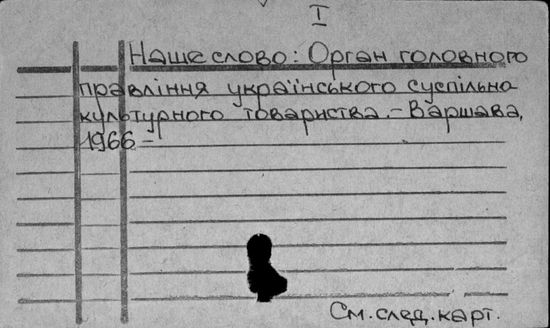 I
Наше слово: Орган головного
правління українського суспільно
культурного товариства.-Варшава,
1966 –
См. след. карт.